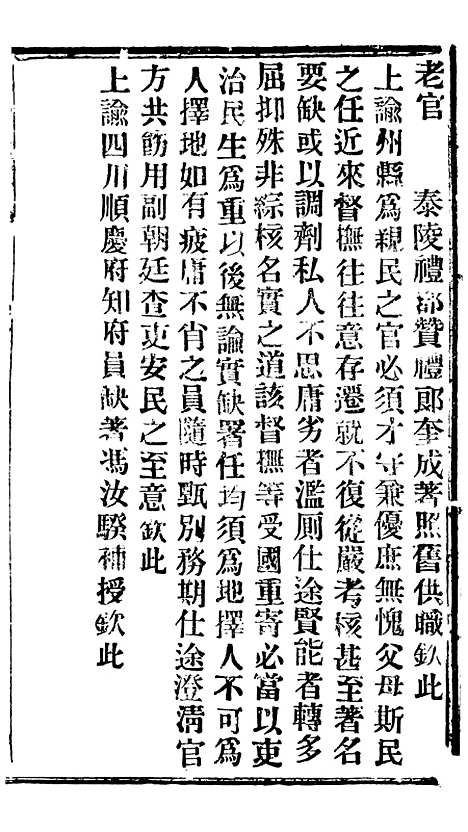 老官　　泰陵禮部贊禮郎奎成著照舊供職欽此
上諭州縣爲親民之官必須才守兼優庶無愧父母斯民
之任近來督撫往往意存遷就不復從嚴考核甚至著名
要缺或以調劑私人不思庸劣者濫廁仕途賢能者轉多
屈抑殊非綜核名實之道該督撫等受國重寄必當以吏
治民生爲重以後無論實缺署任均須爲地擇人不可爲
人擇地如有疲庸不肖之員隨時甄別務期仕途澄清官
方共飭用副朝廷查吏安民之至意欽此
上諭四川順慶府知府員缺著馮汝騤補授欽此